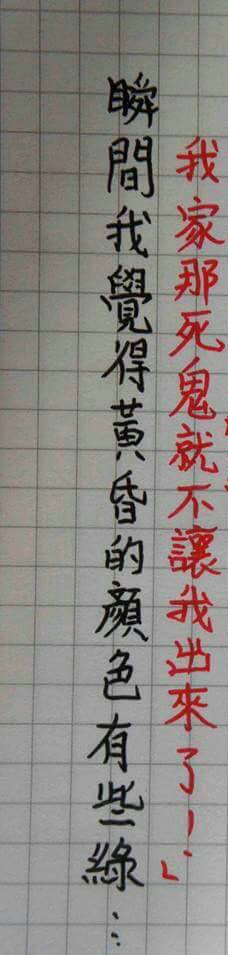 我家那死鬼就不讓我出來了!」
瞬間我覺得黃昏的顏色有些綠…